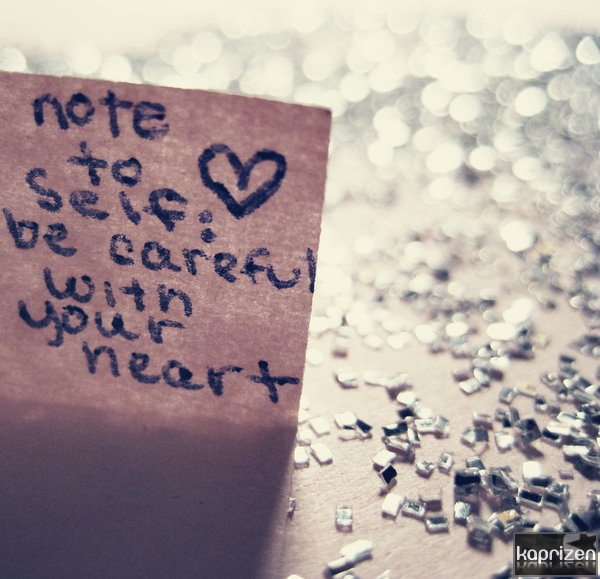 note
to
self:
be careful
with
your
heart
kaprizen